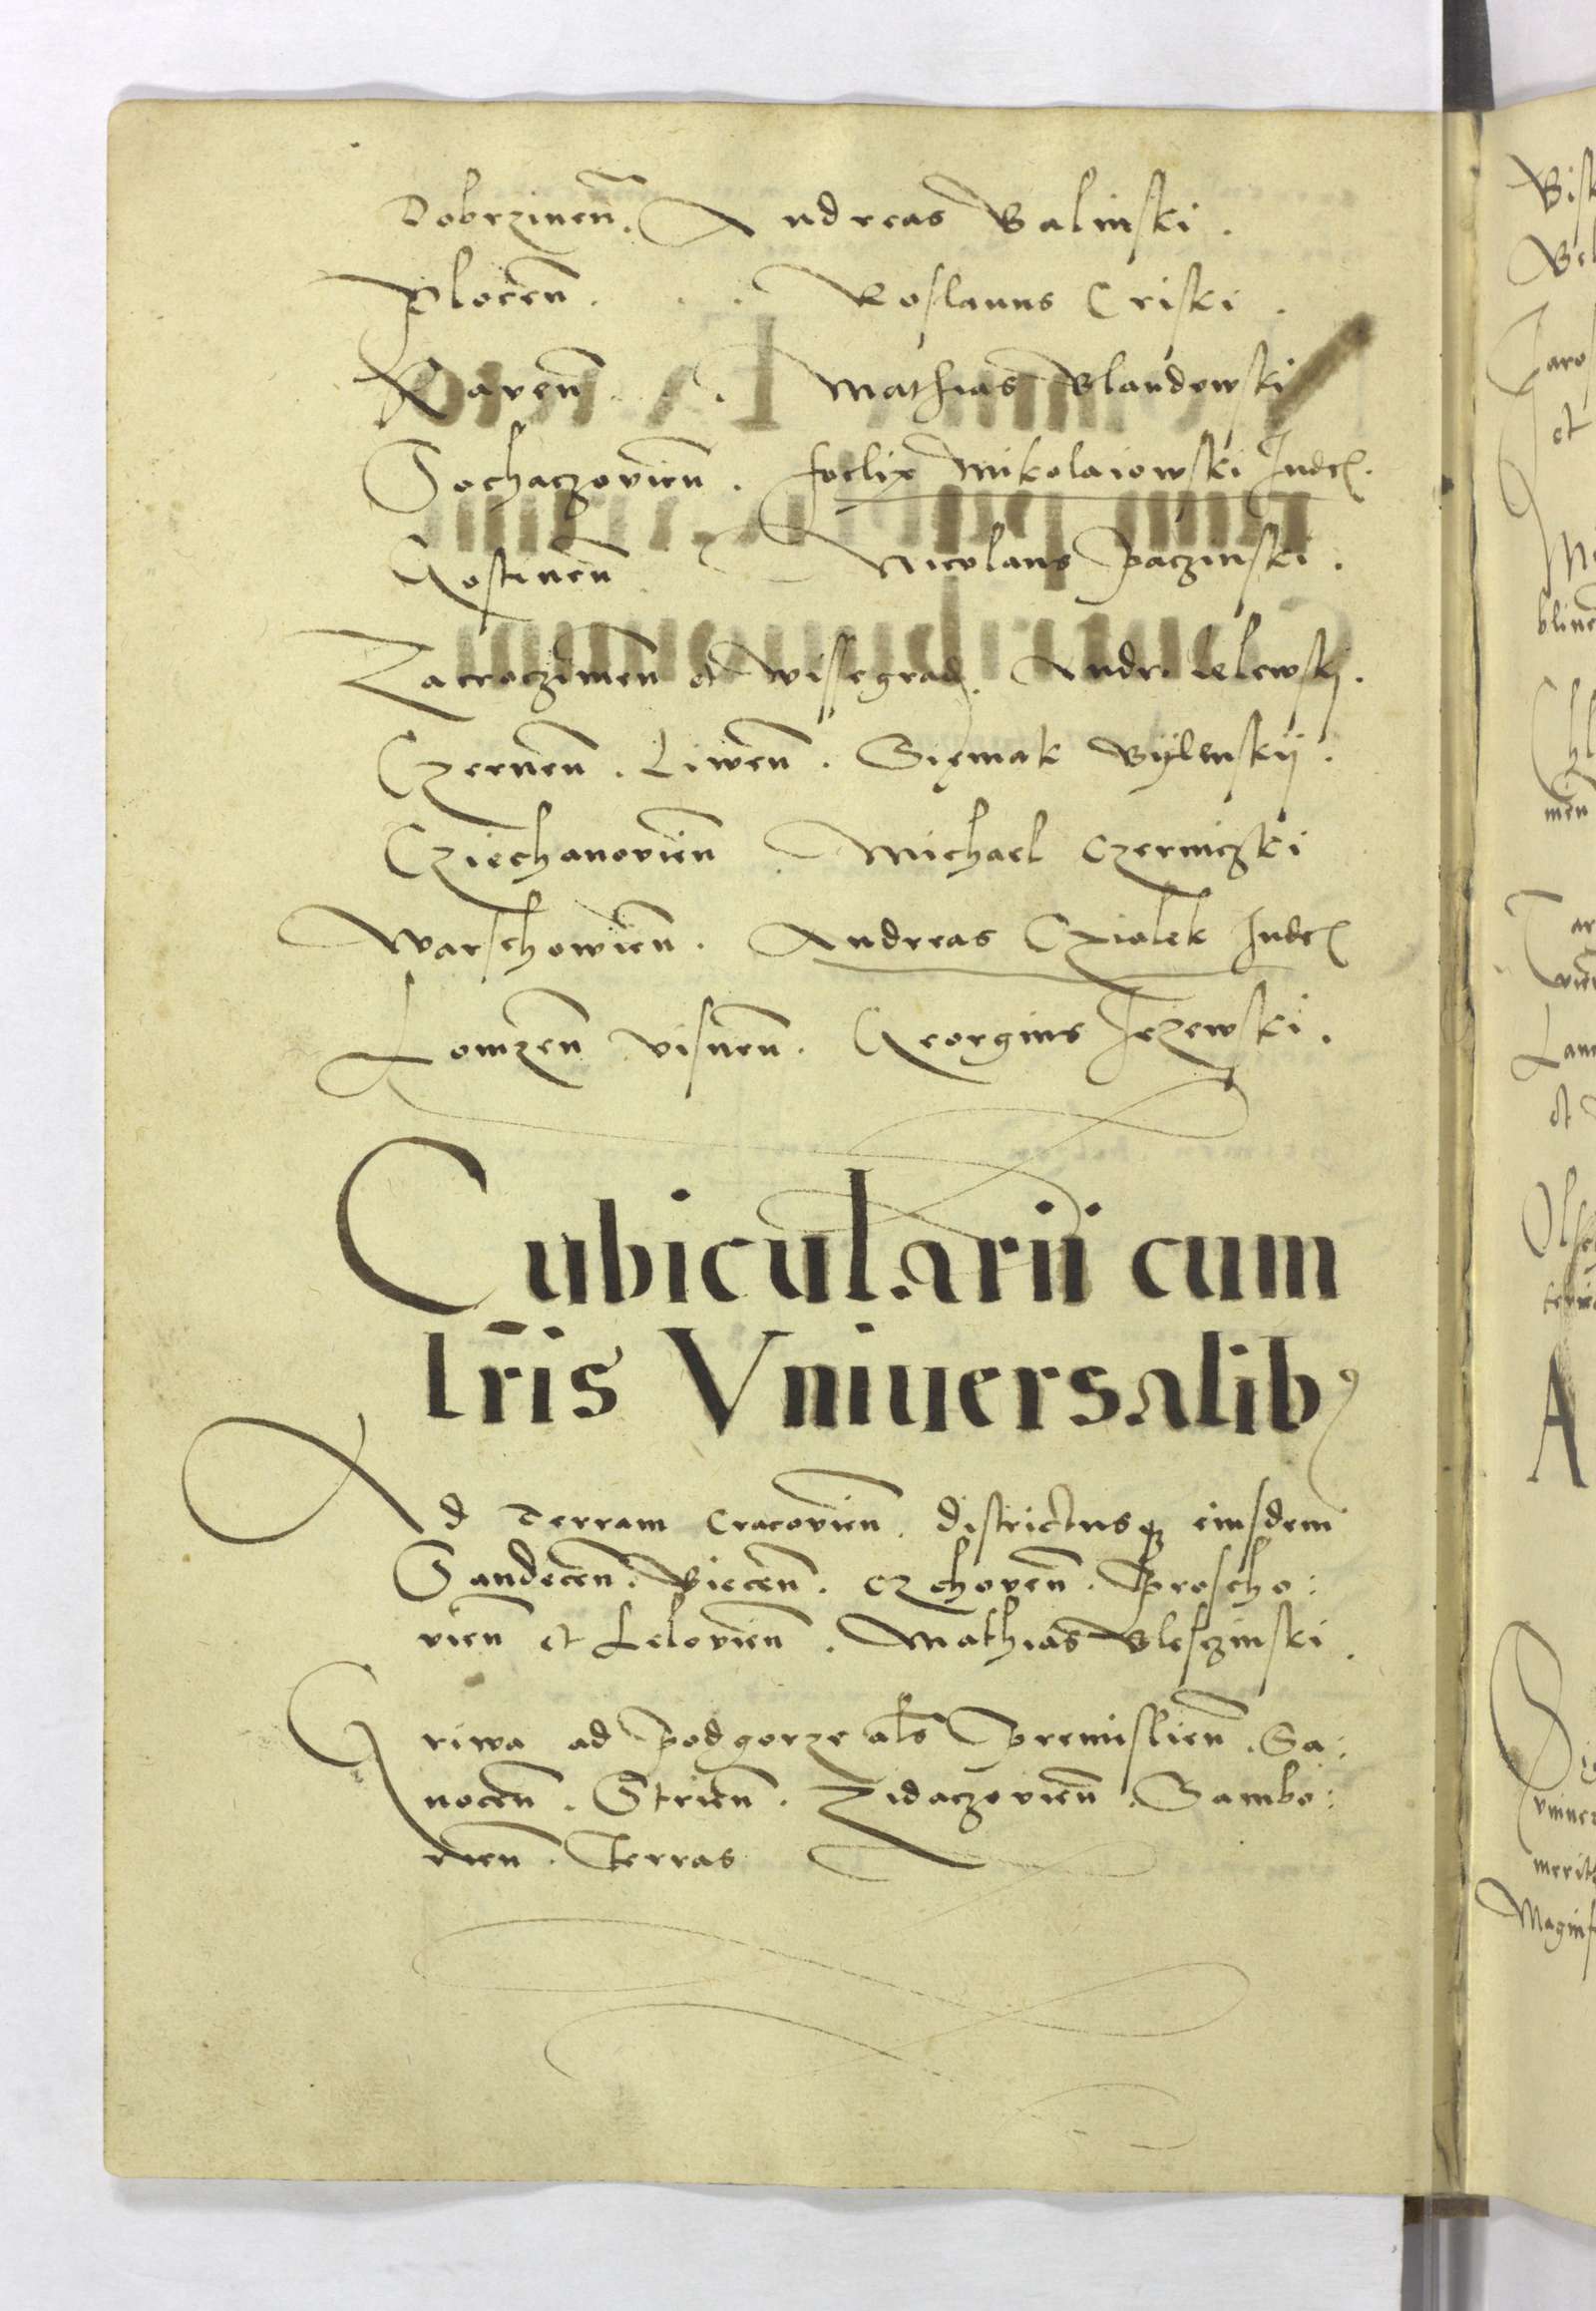 Dobrzinen̄. Andreas Balinski.
Plocen̄ . . . Roslauus Criski.
Raven̄ . . Mathias Glandowski
Sochaczovien̄. foelix Mikolaiowski Judex.
Gostinen̄ Nicolaus Paczinski.
Zacroczimen̄ et wissegrad. Andr. Ulewskj.
Czernen̄. Liwen̄. Sięmak Bÿlinskÿ.
Cziechanovien̄. Michael Czerniczki
Warschowien̄. Andreas Cziolek Judex
Lomzen̄ visnen̄. Georgius Jezewski.
Cubicularii cum
lr̄is Vniuersalibꝰ
Ad Terram Cracovien̄. districtusqꝫ eiusdem
Sandecen̄. Biecen̄. Czchoven̄. Proscho:
vien̄ et Lelovien̄. Mathias Bleszinski.
Griwa ad Podgorze al̄s Premislien̄. Sa:
nocen̄. Strien̄. Zidaczovien̄. Sambo:
rien̄. Terras